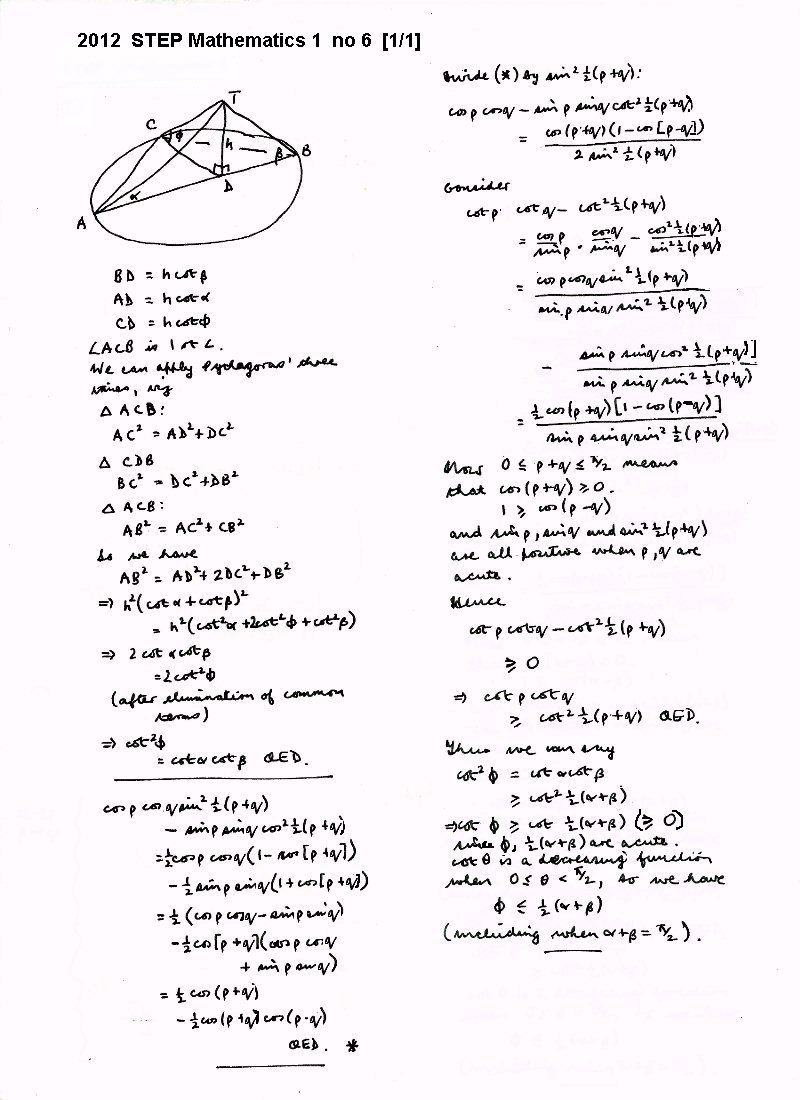 2012 STEP Mathematics 1 no 6 [1/1]
T
C
φ
h
β
B
D
α
A
BD = h cot β
AD = h cot α
CD = h cot φ
∠ACB is 1 rt ∠.
We can apply Pythagoras' three
times, viz
△ ACB:
AC² = AD² + DC²
△ CDB
BC² = DC² + DB²
△ ACB:
AB² = AC² + CB²
So we have
AB² = AD² + 2DC² + DB²
⇒ h²(cot α + cot β)²
= h²(cot²α + 2cot²φ + cot²β)
⇒ 2 cot α cot β
= 2cot²φ
(after elimination of common
terms)
⇒ cot²φ
= cot α cot β QED.
cos p cos q sin² ½(p+q)
- sin p sin q cos² ½(p+q)
= ½ cos p cos q (1 - cos[p+q])
- ½ sin p sin q (1 + cos[p+q])
= ½ (cos p cos q - sin p sin q)
- ½ cos[p+q](cos p cos q
+ sin p sin q)
= ½ cos(p+q)
- ½ cos(p+q) cos(p-q)
QED. *
Divide (*) by sin² ½(p+q):
cos p cos q - sin p sin q cot² ½(p+q)
= cos(p+q)(1 - cos[p-q])
2 sin² ½(p+q)
Consider
cot p cot q - cot² ½(p+q)
= cos p/sin p · cos q/sin q - cos² ½(p+q)/sin² ½(p+q)
= cos p cos q sin² ½(p+q)
sin p sin q sin² ½(p+q)
- sin p sin q cos² ½(p+q)]
sin p sin q sin² ½(p+q)
= ½ cos(p+q)[1 - cos(p-q)]
sin p sin q sin² ½(p+q)
Now 0 ≤ p+q ≤ π/2 means
that cos(p+q) ≥ 0.
1 ≥ cos(p-q)
and sin p, sin q and sin² ½(p+q)
are all positive when p, q are
acute.
Hence
cot p cot q - cot² ½(p+q)
≥ 0
⇒ cot p cot q
≥ cot² ½(p+q) QED.
Thus we can say
cot² φ = cot α cot β
≥ cot² ½(α+β)
⇒ cot φ ≥ cot ½(α+β) (≥ 0)
since φ, ½(α+β) are acute.
cot θ is a decreasing function
when 0 ≤ θ < π/2, so we have
φ ≤ ½(α+β)
(including when α+β = π/2).